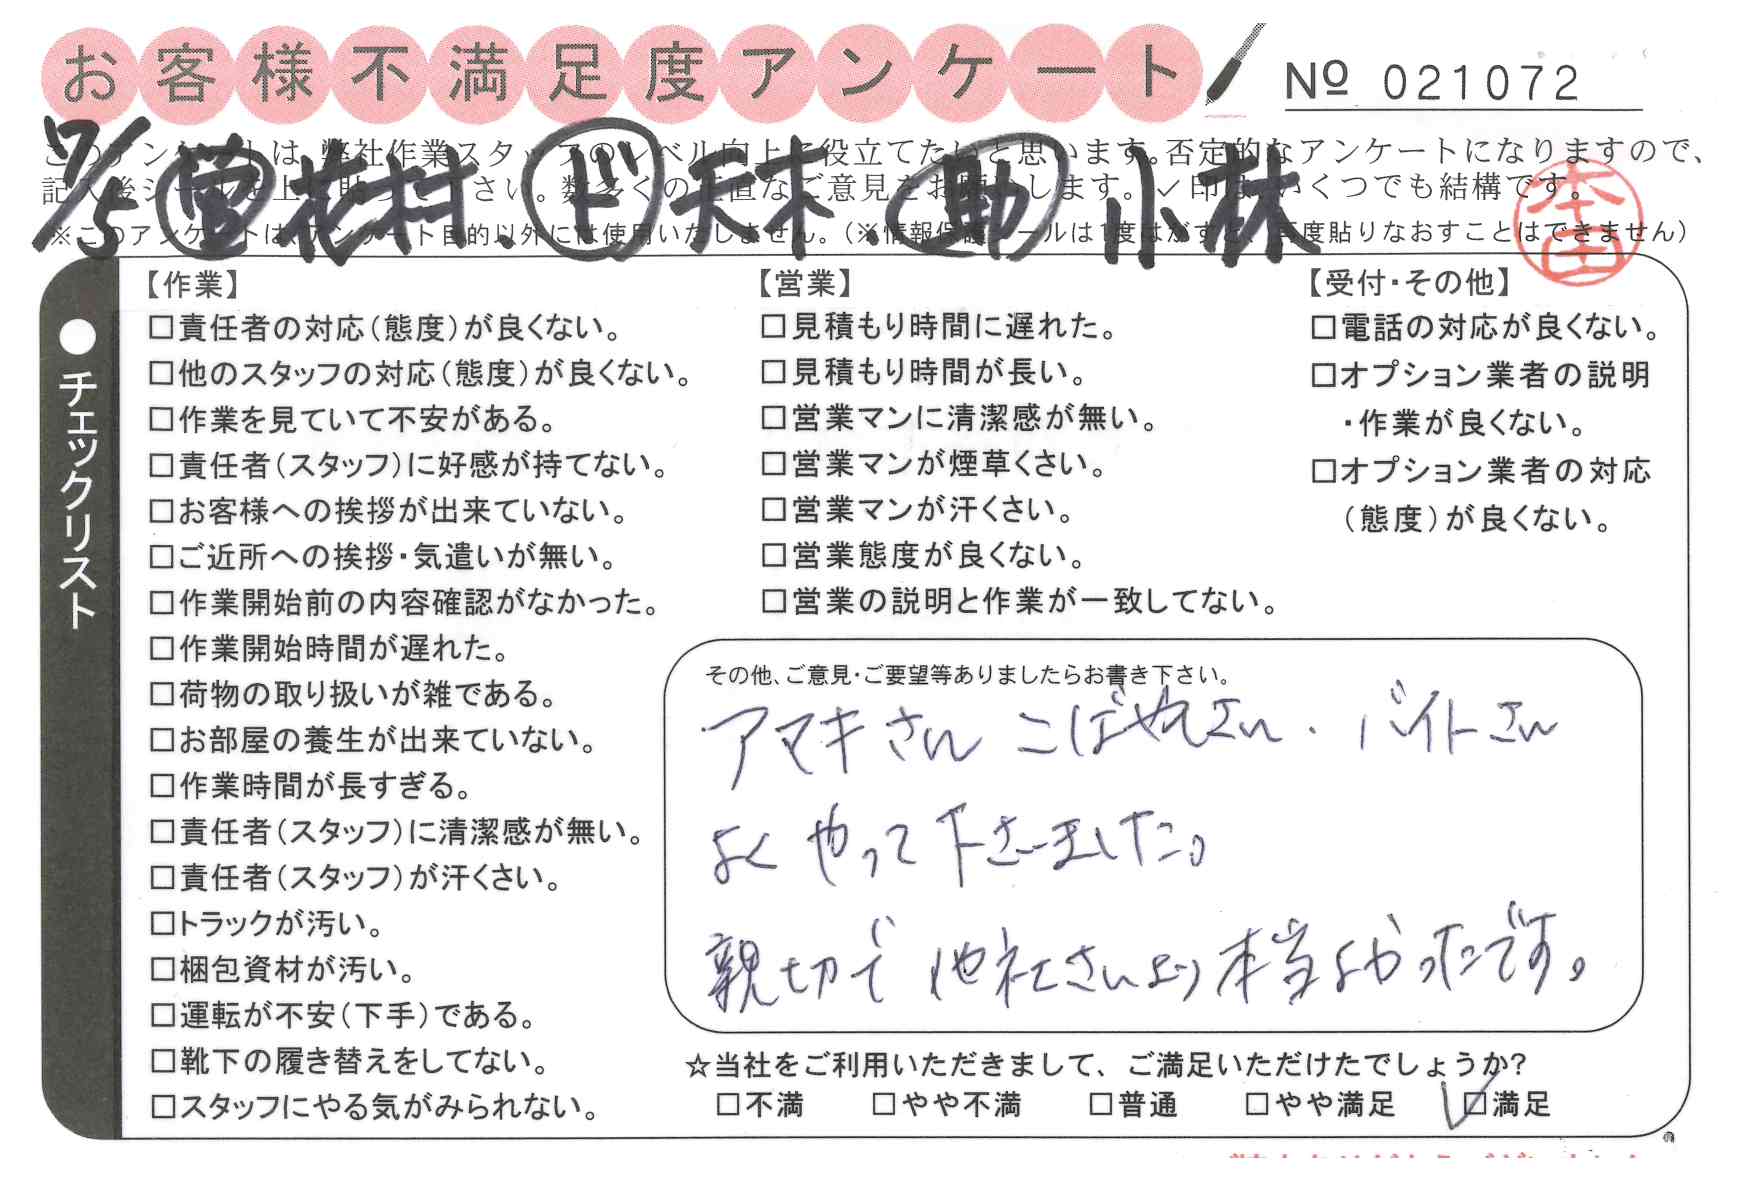 お客様不満足度アンケート
№ 021072
このアンケートは、弊社作業スタッフのレベル向上に役立てたいと思います。否定的なアンケートになりますので、
記入後シールを上に貼って下さい。数多くの正直なご意見をお願いします。✓印は、いくつでも結構です。
※このアンケートは、アンケート目的以外には使用いたしません。（※情報保護シールは1度はがすと、再度貼りなおすことはできません）
営 花村、ド 天木 助 小林
本田
●チェックリスト
【作業】
□責任者の対応（態度）が良くない。
□他のスタッフの対応（態度）が良くない。
□作業を見ていて不安がある。
□責任者（スタッフ）に好感が持てない。
□お客様への挨拶が出来ていない。
□ご近所への挨拶・気遣いが無い。
□作業開始前の内容確認がなかった。
□作業開始時間が遅れた。
□荷物の取り扱いが雑である。
□お部屋の養生が出来ていない。
□作業時間が長すぎる。
□責任者（スタッフ）に清潔感が無い。
□責任者（スタッフ）が汗くさい。
□トラックが汚い。
□梱包資材が汚い。
□運転が不安（下手）である。
□靴下の履き替えをしてない。
□スタッフにやる気がみられない。
【営業】
□見積もり時間に遅れた。
□見積もり時間が長い。
□営業マンに清潔感が無い。
□営業マンが煙草くさい。
□営業マンが汗くさい。
□営業態度が良くない。
□営業の説明と作業が一致してない。
【受付・その他】
□電話の対応が良くない。
□オプション業者の説明
・作業が良くない。
□オプション業者の対応
（態度）が良くない。
その他、ご意見・ご要望等ありましたらお書き下さい。
アマキさん こばやしさん、バイトさん
よくやって下さいました。
親切で他社さんより本当よかったです。
☆当社をご利用いただきまして、ご満足いただけたでしょうか？
□不満 □やや不満 □普通 □やや満足 ☑満足